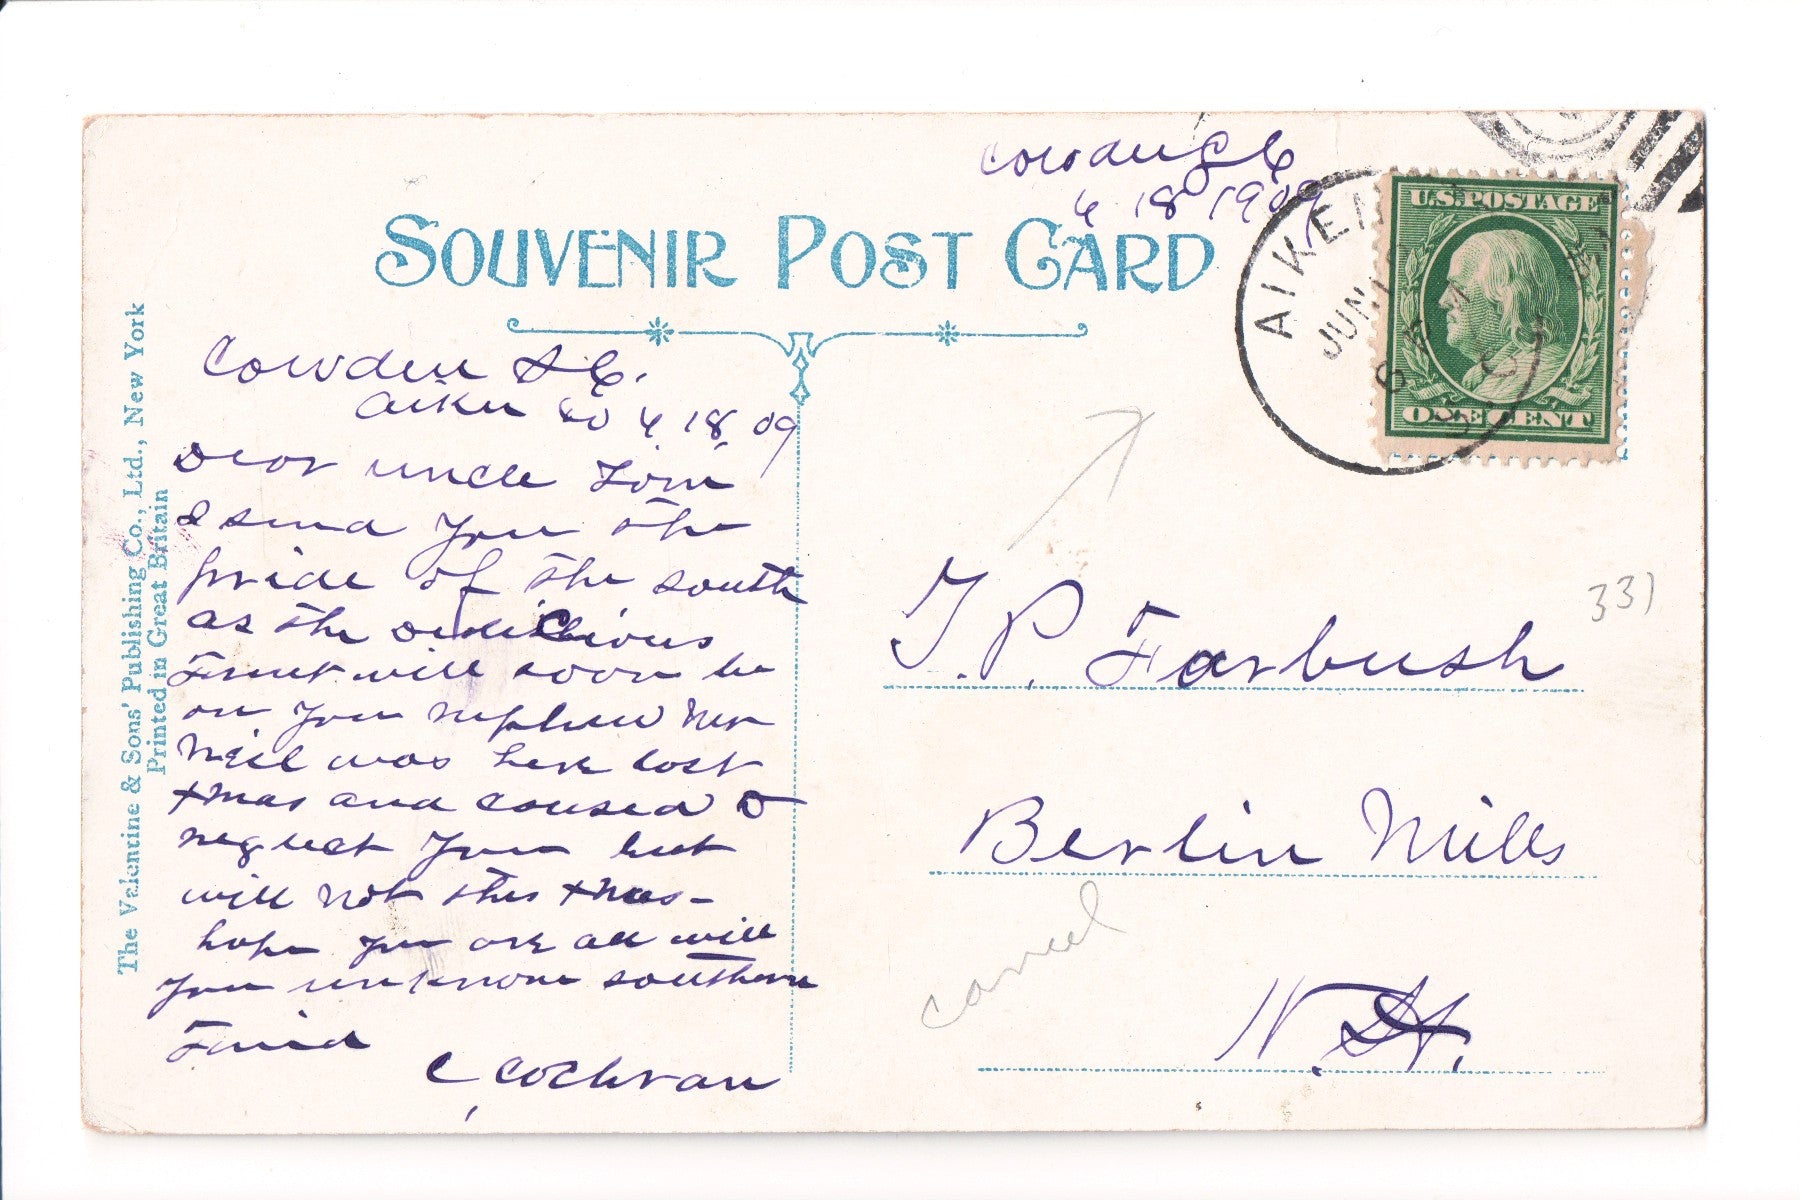 Cowden S C
6 18 1909
SOUVENIR POST CARD
AIKEN
JUN
6 AM
U.S. POSTAGE
ONE CENT
The Valentine & Sons' Publishing Co., Ltd., New York
Printed in Great Britain
Cowden S C.
Aiken co 6 18 09
Dear uncle Tom
I send you the
pride of the south
as the
Fruit will soon be
on your nephew Mr
Neil was here last
xmas and caused
neglect you but
will not this xmas-
hope you are all well
your unknown southern
Friend
C Cochran
T. P. Farbush
Berlin Mills
N. H.
331
cancel